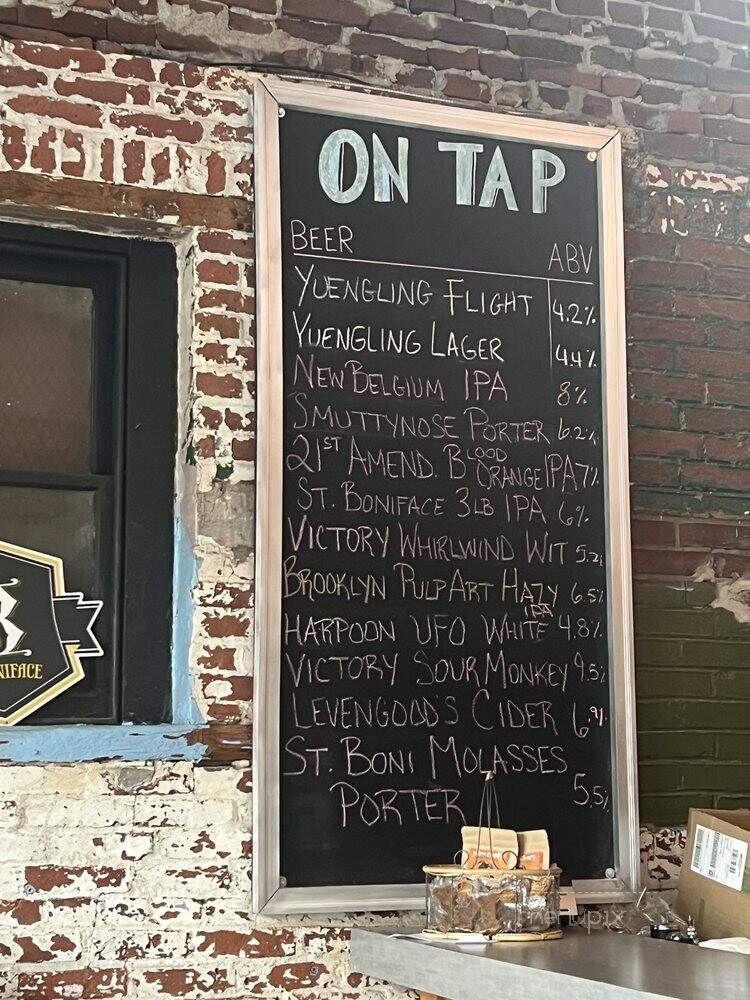 ON TAP
BEER ABV
YUENGLING FLIGHT 4.2%
YUENGLING LAGER 4.4%
NEW BELGIUM IPA 8%
SMUTTYNOSE PORTER 6.2%
21ST AMEND. BLOOD ORANGE IPA 7%
ST. BONIFACE 3LB IPA 6%
VICTORY WHIRLWIND WIT 5.2%
BROOKLYN PULP ART HAZY IPA 6.5%
HARPOON UFO WHITE 4.8%
VICTORY SOUR MONKEY 9.5%
LEVENGOOD'S CIDER 6.9%
ST. BONI MOLASSES
PORTER 5.5%
NIFACE
menupix